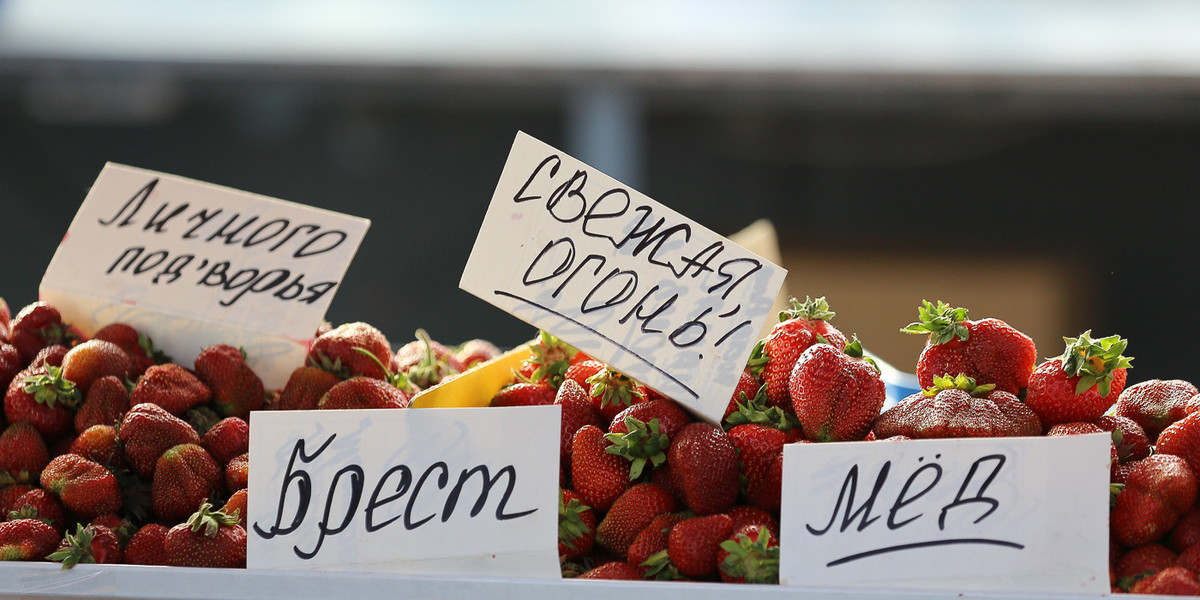 Личного
под'ворья
СВЕЖАЯ,
ОГОНЬ!!
Брест
Мёд